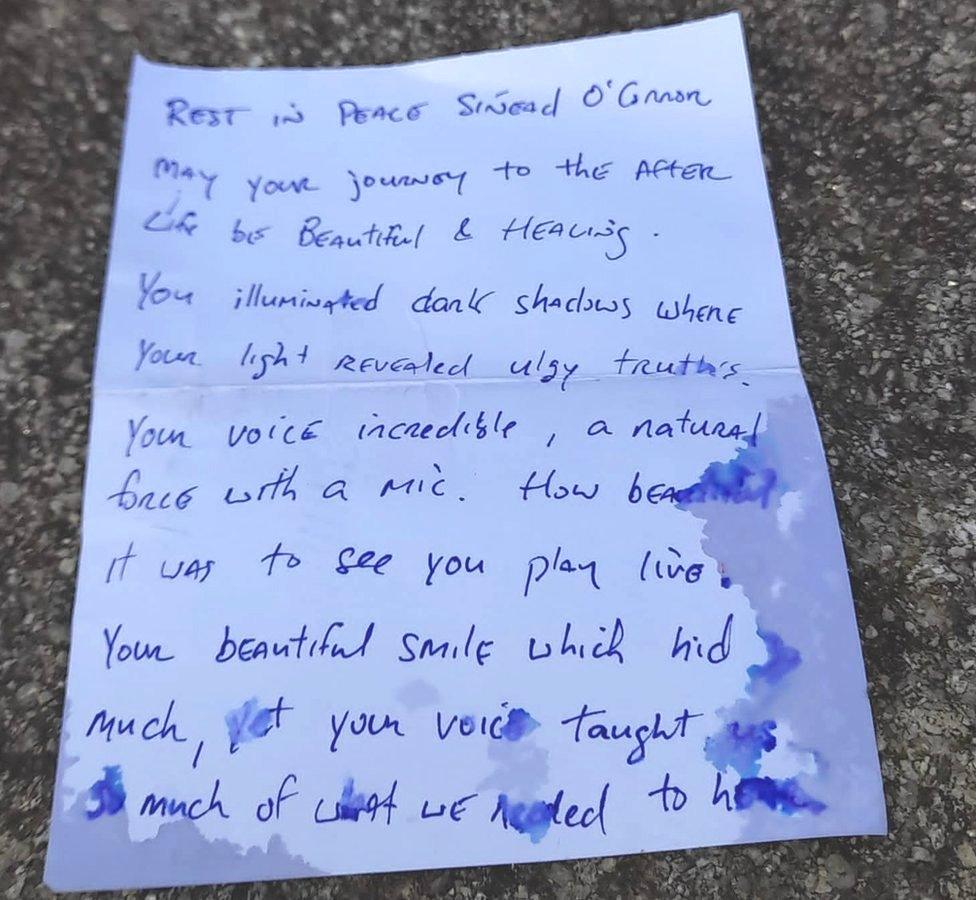 REST in PEACE SiNEad O'Connor
MAY your journey to the AFTER
Life be BEAutiful & HEALiNg.
You illuminated dark shadows where
Your light REVEALed ulgy truth's.
Your voice incredible, a natural
force with a mic. How beautiful
it was to see you play live.
Your beautiful smile which hid
much, yet your voice taught us
so much of what we needed to